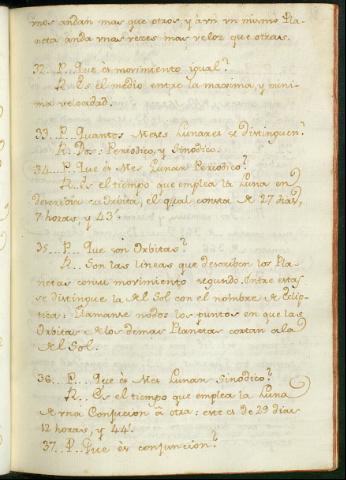 unos andan mas que otros y aun un mismo Pla-
neta anda unas vezes mas veloz que otras.
32..P..Que es movimiento igual?
R..Es el medio entre la maxima, y mini-
ma velocidad.
33..P..Quantos Meses Lunares se distinguen?
R..Dos: Periodico, y Sinodico.
34...P..Que es Mes Lunar Periodico?
R..Es el tiempo que emplea la Luna en
describir su orbita, el qual consta de 27 dias,
7 horas, y 43'.
35..P..Que son Orbitas?
R..Son las lineas que describen los Pla-
netas con su movimiento segundo. Entre estas
se distingue la del Sol con el nombre de Eclip-
tica: llamanse nodos los puntos en que las
Orbitas de los demas Planetas cortan a la
del Sol.
36..P...Que es Mes Lunar Sinodico?
R...Es el tiempo que emplea la Luna
de una Conjucion à otra: este es de 29 dias
12 horas, y 44'.
37..P..Que es conjuncion?